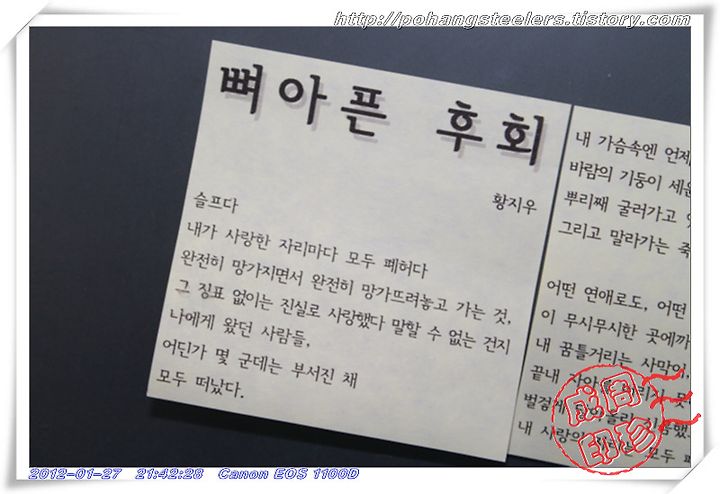 http://pohangsteelers.tistory.com
뼈아픈 후회
황지우
슬프다
내가 사랑한 자리마다 모두 폐허다
완전히 망가지면서 완전히 망가뜨려놓고 가는 것,
그 징표 없이는 진실로 사랑했다 말할 수 없는 건지
나에게 왔던 사람들,
어딘가 몇 군데는 부서진 채
모두 떠났다.
내 가슴속엔 언제
바람의 기둥이 세운
뿌리째 굴러가고
그리고 말라가는 죽
어떤 연애로도, 어떤
이 무시무시한 곳에까
내 꿈틀거리는 사막이,
끝내
벌겋게
내 사랑의 모두 폐
2012-01-27 21:42:28 Canon EOS 1100D